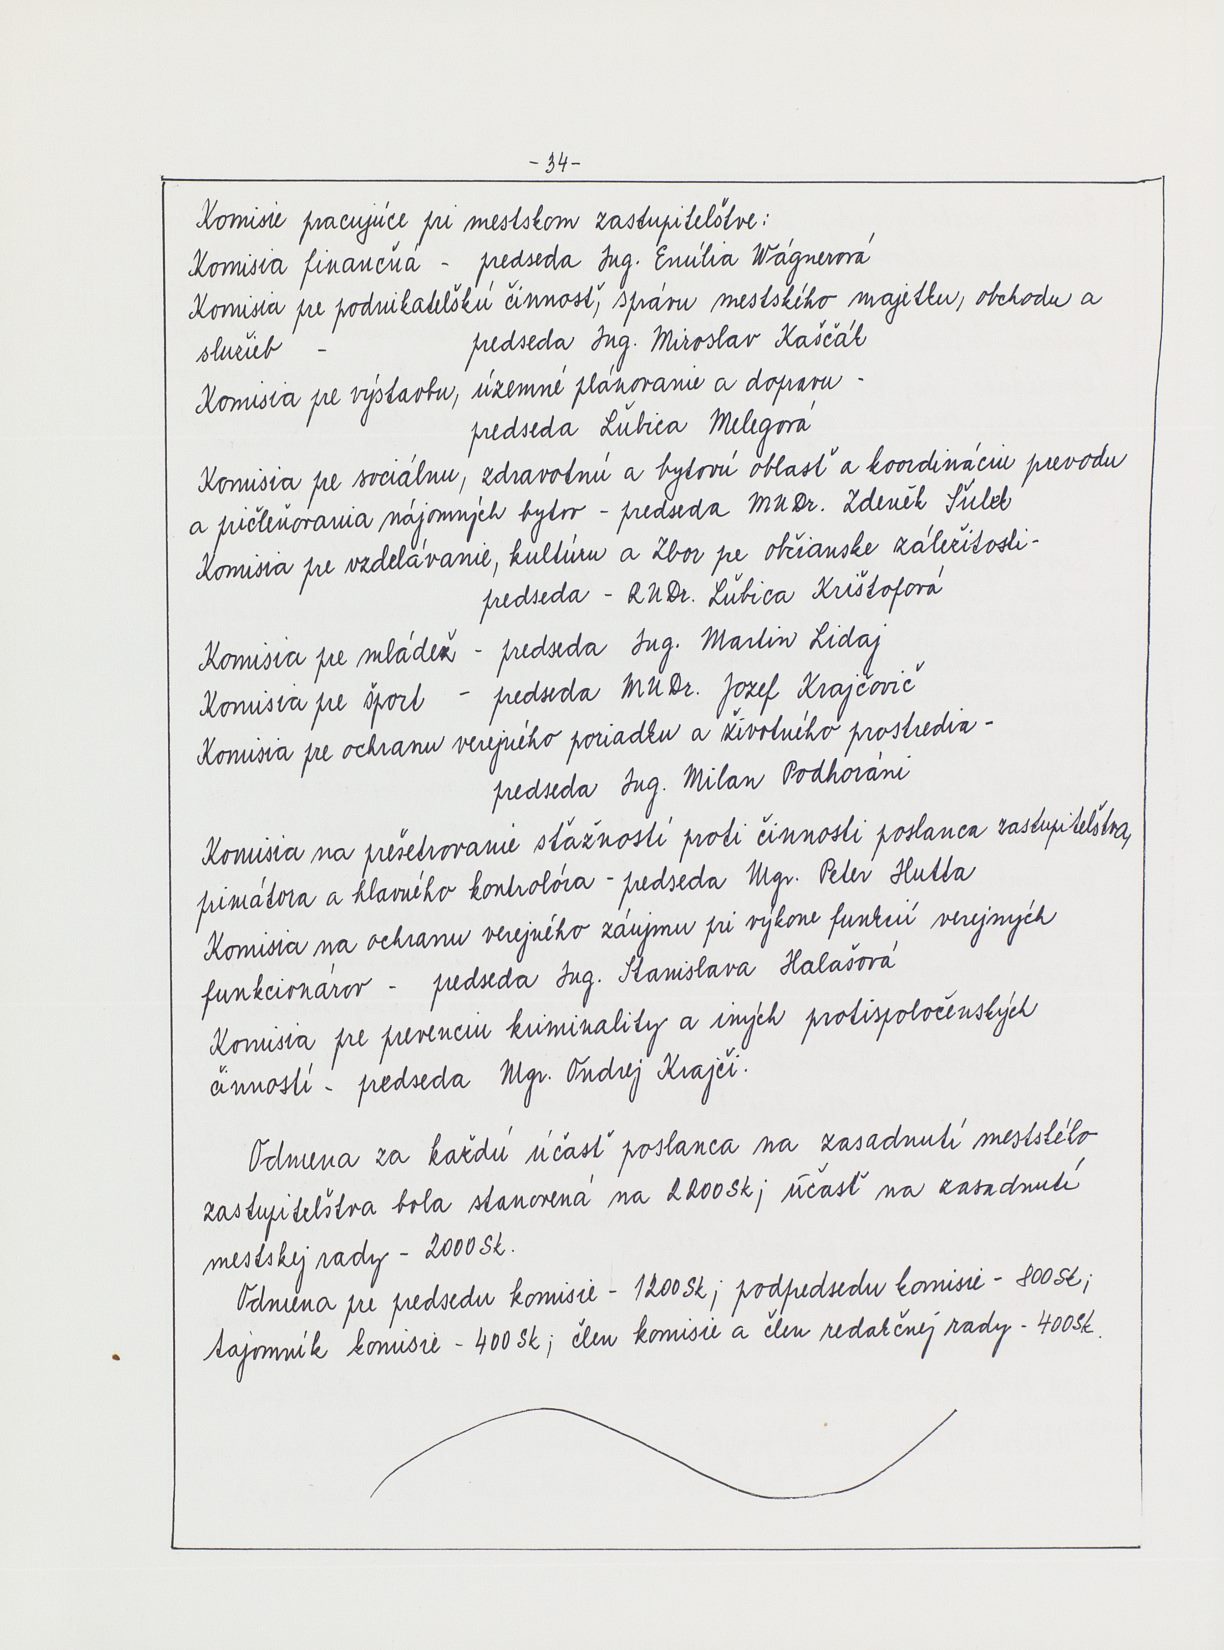 - 34 -
Komisie pracujúce pri mestskom zastupiteľstve:
Komisia finančná - predseda Ing. Emília Wágnerová
Komisia pre podnikateľskú činnosť, správu mestského majetku, obchodu a
služieb - predseda Ing. Miroslav Kaščák
Komisia pre výstavbu, územné plánovanie a dopravu -
predseda Ľubica Melegová
Komisia pre sociálnu, zdravotnú a bytovú oblasť a koordináciu prevodu
a pričleňovania nájomných bytov - predseda MUDr. Zdeněk Šulek
Komisia pre vzdelávanie, kultúru a Zbor pre občianske záležitosti -
predseda - RNDr. Ľubica Krištofová
Komisia pre mládež - predseda Ing. Martin Lidaj
Komisia pre šport - predseda MUDr. Jozef Krajčovič
Komisia pre ochranu verejného poriadku a životného prostredia -
predseda Ing. Milan Podhoráni
Komisia na prešetrovanie sťažností proti činnosti poslanca zastupiteľstva,
primátora a hlavného kontrolóra - predseda Mgr. Peter Hutta
Komisia na ochranu verejného záujmu pri výkone funkcií verejných
funkcionárov - predseda Ing. Stanislava Halašová
Komisia pre prevenciu kriminality a iných protispoločenských
činností - predseda Mgr. Ondrej Krajči.
Odmena za každú účasť poslanca na zasadnutí mestského
zastupiteľstva bola stanovená na 2200 Sk; účasť na zasadnutí
mestskej rady - 2000 Sk.
Odmena pre predsedu komisie - 1200 Sk; podpredsedu komisie - 800 Sk;
tajomník komisie - 400 Sk; člen komisie a člen redakčnej rady - 400 Sk.